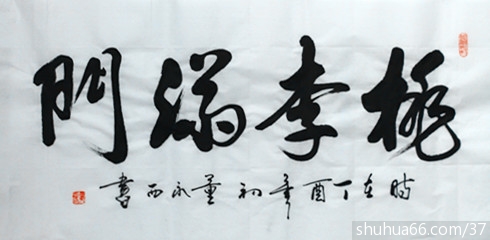 桃李满門
时在丁酉年初董永西書
shuhua66.com/37